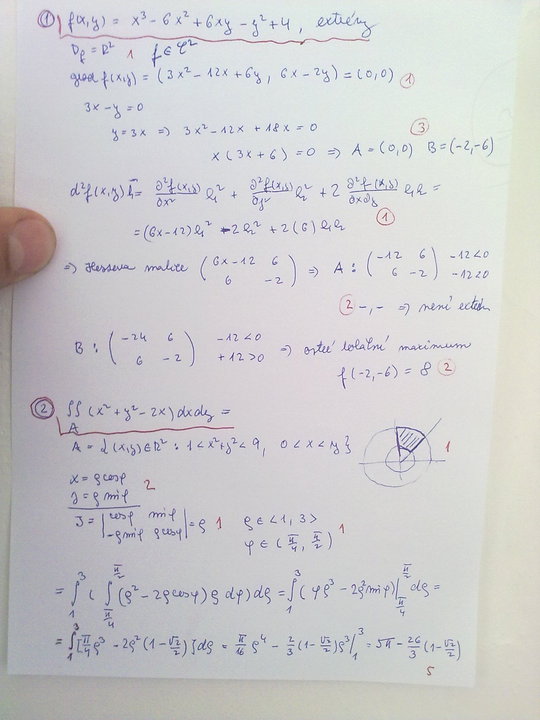 ① f(x,y) = x³ - 6x² + 6xy - y² + 4, extrémy
D_f = R² 1 f ∈ C²
grad f(x,y) = (3x² - 12x + 6y, 6x - 2y) = (0,0) ①
3x - y = 0
y = 3x ⇒ 3x² - 12x + 18x = 0 ③
x(3x + 6) = 0 ⇒ A = (0,0) B = (-2,-6)
d²f(x,y) h̄ = ∂²f(x,y)/∂x² h² + ∂²f(x,y)/∂y² k² + 2 ∂²f(x,y)/∂x∂y hk =
= (6x-12)h² - 2k² + 2(6)hk ①
⇒ Hesseva matice (6x-12 6 / 6 -2) ⇒ A: (-12 6 / 6 -2) -12<0 -12<0
② -,- ⇒ není extrém
B: (-24 6 / 6 -2) -12<0 +12>0 ⇒ ostré lokální maximum
f(-2,-6) = 8 ②
② ∬_A (x² + y² - 2x) dxdy =
A = {(x,y) ∈ R² : 1 < x² + y² < 9, 0 < x < y} 1
x = ρcosφ
y = ρ sinφ 2
J = |cosφ sinφ / -ρsinφ ρcosφ| = ρ 1 ρ ∈ <1, 3> 1
φ ∈ (π/4, π/2)
= ∫₁³ ( ∫_{π/4}^{π/2} (ρ² - 2ρcosφ) ρ dφ) dρ = ∫₁³ (φρ³ - 2ρ² sinφ)|_{π/4}^{π/2} dρ =
= ∫₁³ [π/4 ρ³ - 2ρ² (1 - √2/2)] dρ = π/16 ρ⁴ - 2/3 (1 - √2/2) ρ³ |₁³ = 5π - 26/3 (1 - √2/2)
5